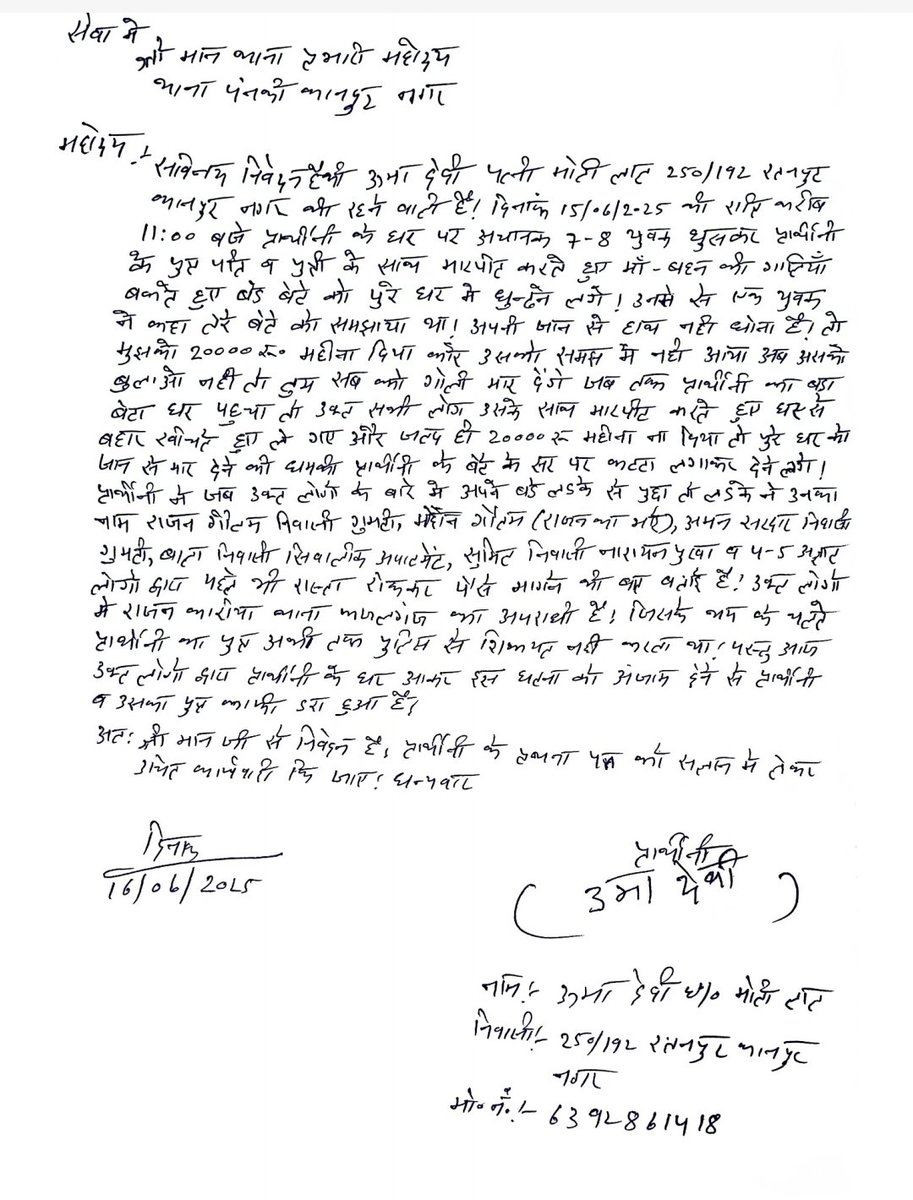 सेवा में
श्री मान थाना प्रभारी महोदय
थाना पनकी कानपुर नगर
महोदय :-
सविनय निवेदन है की ऊमा देवी पत्नी मोती लाल 250/192 रतनपुर
कानपुर नगर की रहने वाली है! दिनांक 15/06/2025 की रात्रि करीब
11:00 बजे प्रार्थीनी के घर पर अचानक 7-8 युवक घुसकर प्रार्थीनी
के पुत्र पति व पुत्री के साथ मारपीट करते हुए माँ-बहन की गालियाँ
बकते हुए बड़े बेटे को पुरे घर मे ढुन्ढने लगे! उनमे से एक युवक
ने कहा तेरे बेटे को समझाया था! अपनी जान से हाथ नही धोना है! तो
मुझको 20000 रू० महीना दिया करे उसको समझ मे नही आया अब उसको
बुलाओ नही तो तुम सब को गोली मार देंगे जब तक प्रार्थीनी का बड़ा
बेटा घर पहुचा तो उक्त सभी लोग उसके साथ मारपीट करते हुए घर से
बहार खीचते हुए ले गए और जल्द ही 20000 रू महीना ना दिया तो पुरे घर को
जान से मार देने की धमकी प्रार्थीनी के बेटे के सर पर कटटा लगाकर देने लगे!
प्रार्थीनी ने जब उक्त लोगो के बारे मे अपने बड़े लडके से पुछा तो लडके ने उनका
नाम राजन गौतम निवासी गुमटी, गौतम (राजन का भाई), अमन सरदार निवासी
गुमटी, निवासी सिवालीक अपार्टमेंट, सुमित निवासी नारायन पुरवा व 4-5 अज्ञात
लोगो द्वारा पहले भी रास्ता रोककर पैसे मागने की बात बताई है! उक्त लोगो
मे राजन थाना का अपराधी है! जिसके भय के चलते
प्रार्थीनी का पुत्र अभी तक पुलिस से शिकायत नही करता था! परन्तु आज
उक्त लोगो द्वारा प्रार्थीनी के घर आकर इस घटना को अंजाम देने से प्रार्थीनी
व उसका पुत्र काफी डरा हुआ है!
अत: श्री मान जी से निवेदन है, प्रार्थीनी के पत्र को सज्ञान मे लेकर
उचित कार्यवाही कि जाए! धन्यवाद
दिनांक
16/06/2025
प्रार्थीनी
(उमा देवी)
नाम:- ऊमा देवी w/o मोती लाल
निवासी:- 250/192 रतनपुर कानपुर
नगर
मो० नं.:- 6392861418